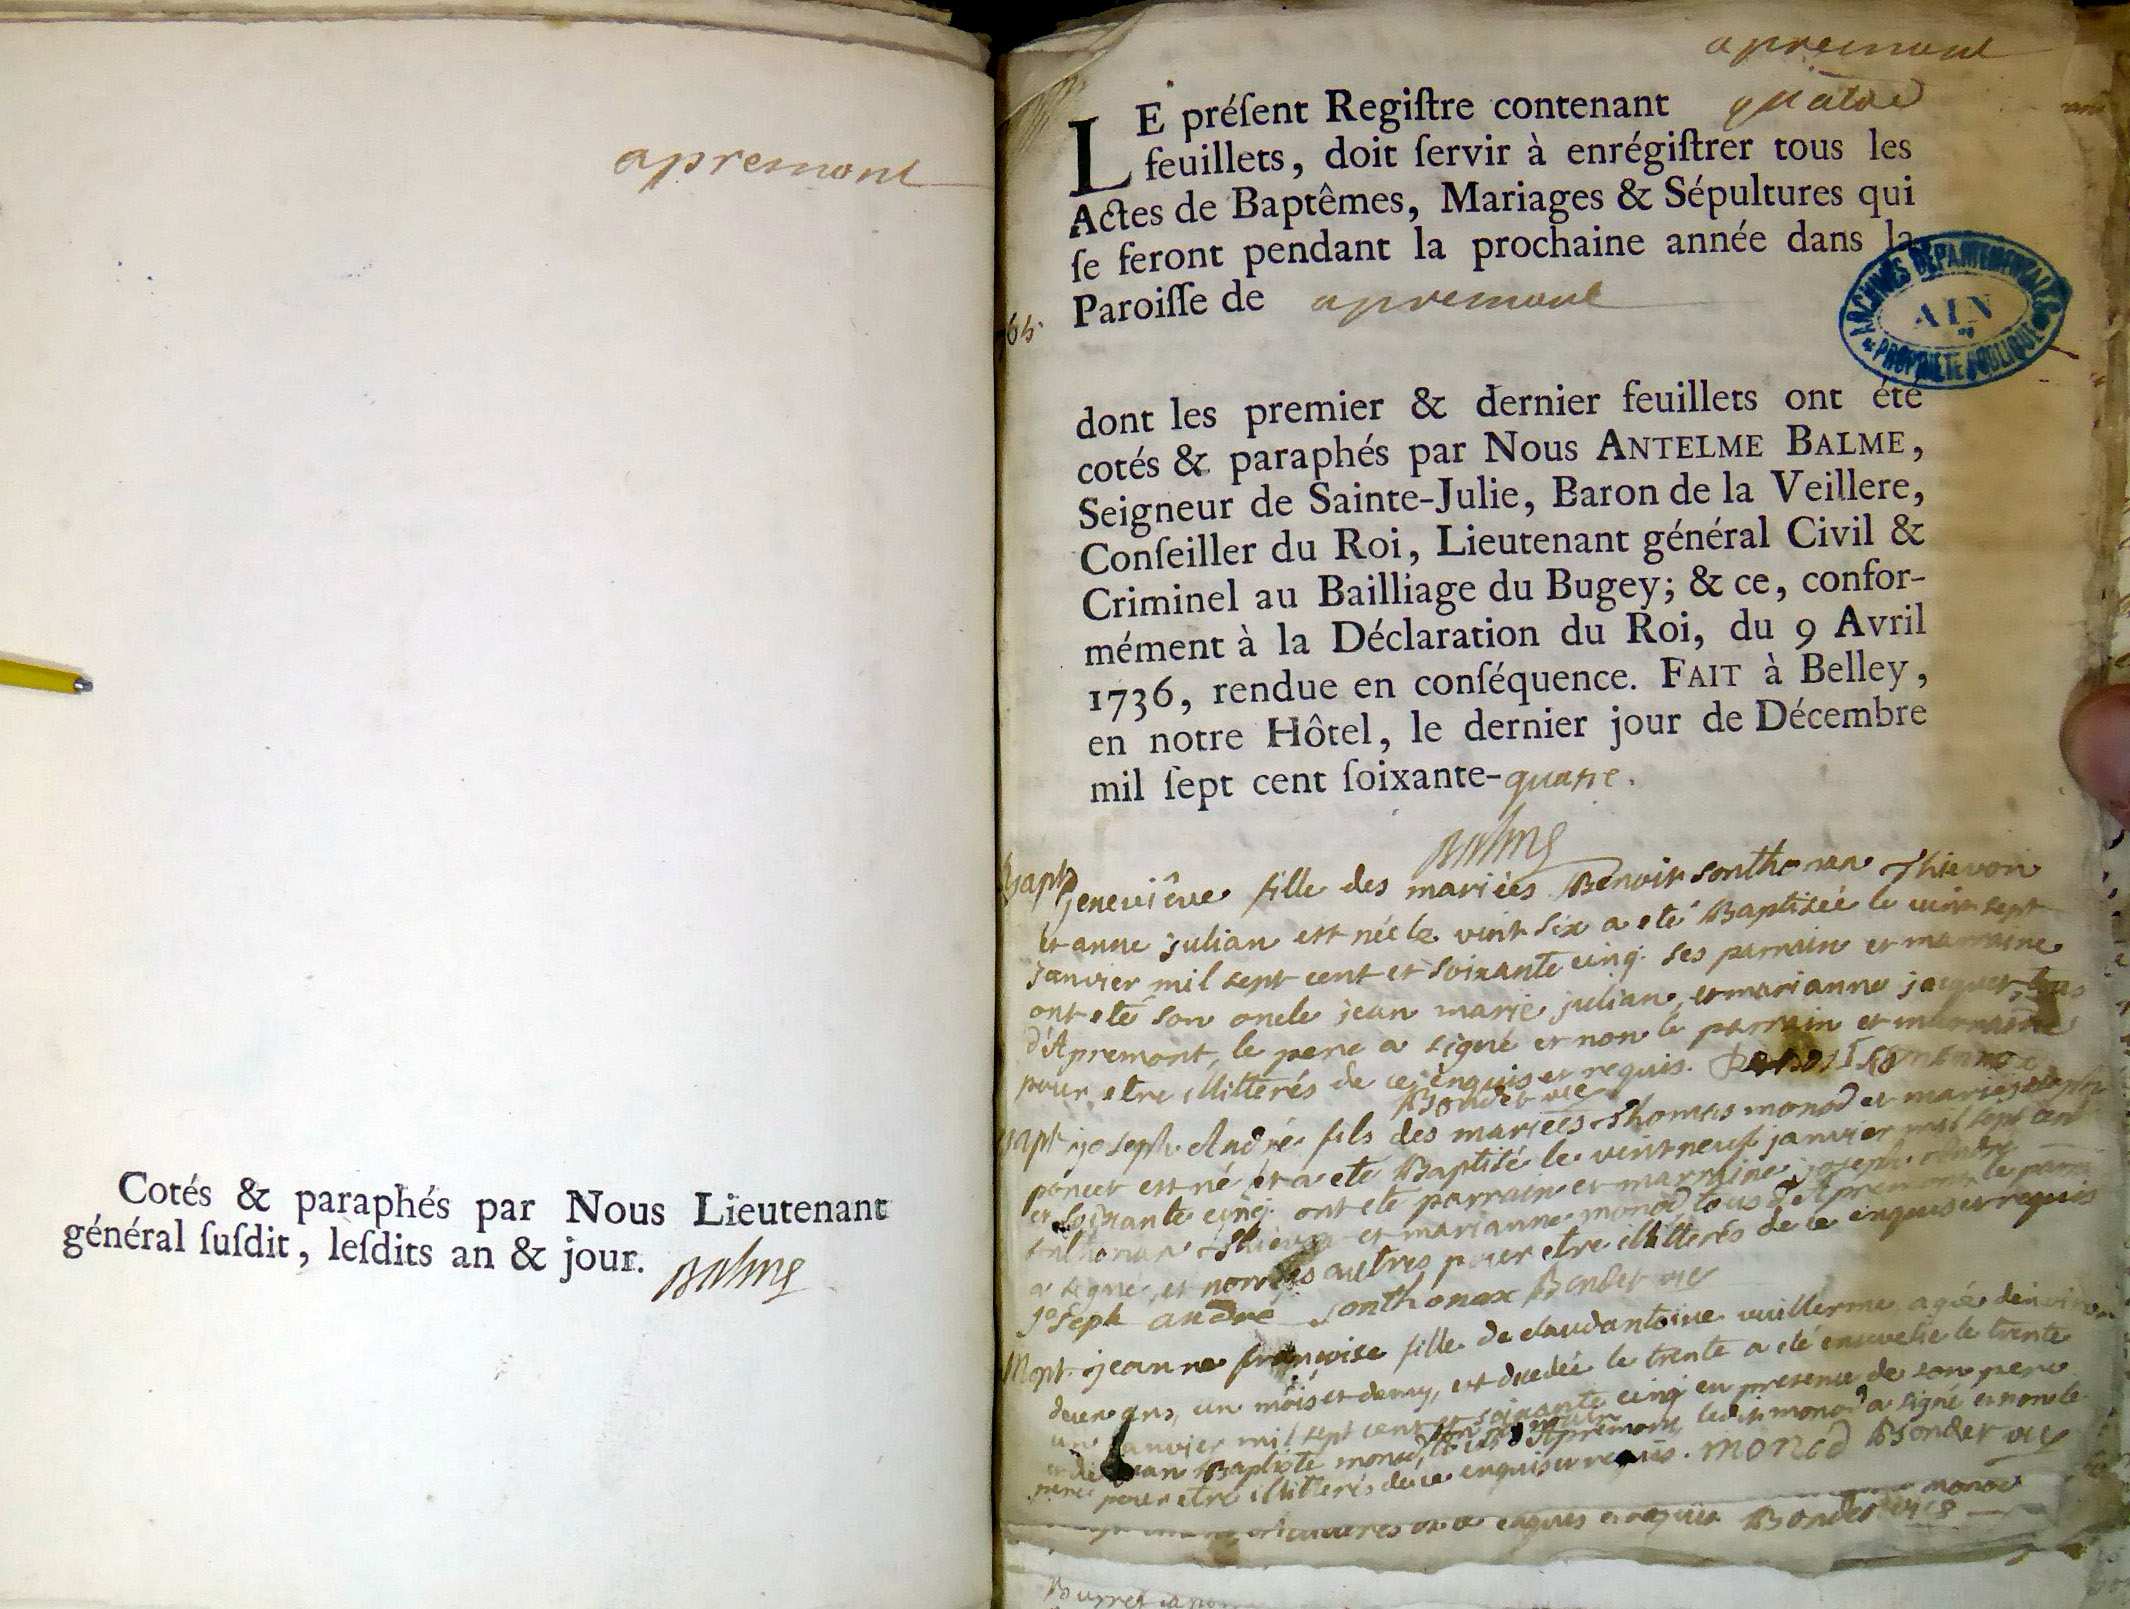 apremont
Cotés & paraphés par Nous Lieutenant
général ſuſdit, leſdits an & jour. Balme
apremont
LE préſent Regiſtre contenant quatre
feuillets, doit ſervir à enrégiſtrer tous les
Actes de Baptêmes, Mariages & Sépultures qui
ſe feront pendant la prochaine année dans la
Paroiſſe de apremont
ARCHIVES DÉPARTEMENTALES
AIN
PROPRIÉTÉ PUBLIQUE
dont les premier & dernier feuillets ont été
cotés & paraphés par Nous ANTELME BALME,
Seigneur de Sainte-Julie, Baron de la Veillere,
Conſeiller du Roi, Lieutenant général Civil &
Criminel au Bailliage du Bugey; & ce, confor-
mément à la Déclaration du Roi, du 9 Avril
1736, rendue en conſéquence. FAIT à Belley,
en notre Hôtel, le dernier jour de Décembre
mil ſept cent ſoixante-quatre.
Balme
Bapt. Geneviêve fille des mariées Benoit sonthonax Thievon
et anne julian est née le vint six a eté Baptisée le vint sept
Janvier mil sept cent et soixante cinq. ses parrain et marraine
ont eté son oncle jean marie julian, et marianne jacquet, tous
d'Apremont, le pere a signé et non le parrain et marraine
pour etre illitterés de ce enquis et requis.
Bondet vic
Bapt. joseph André fils des mariées Thomas monod et marie josephe
poncet est né et a eté Baptisé le vint neuf janvier mil sept cent
et soixante cinq. ont eté parrain et marraine joseph André
sonthonax Thievon et marianne monod tous d'Apremont le parrain
a signé, et non les autres pour etre illitterés de ce enquis et requis
joseph andré sonthonax Bondet vic
Mort. jeanne françoise fille de claudantoine vuillerme agée d'environ
deux ans, un mois et demy, est decedée le trente a eté ensevelie le trente
un janvier mil sept cent et soixante cinq en presence de son pere
et de jean Baptiste monod, tous d'Apremont, ledit monod a signé et non le
pere pour etre illitterés de ce enquis et requis. monod Bondet vic
monod
enquis et requis Bondet vic